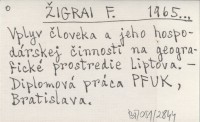 ŽIGRAI F. 1965...
Vplyv človeka a jeho hospo-
dárskej činnosti na geogra-
fické prostredie Liptova. -
Diplomová práca PFUK,
Bratislava.